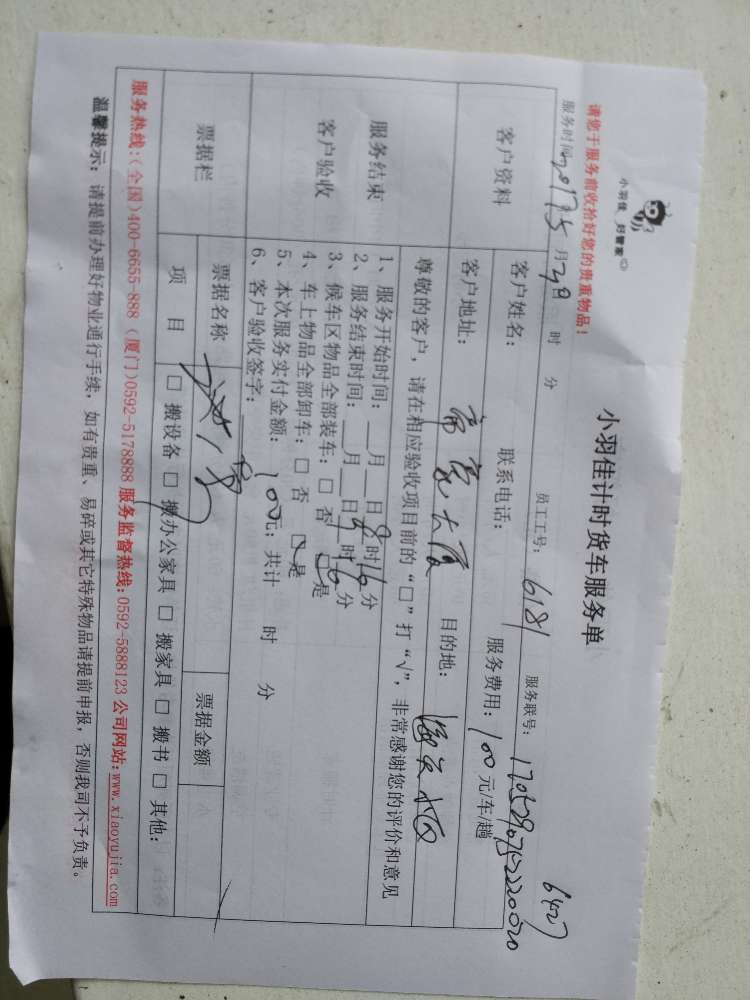 小羽佳 好管家
小羽佳计时货车服务单
6427
请您于服务前收拾好您的贵重物品！
员工工号： 6181 服务联号： 1705290752220020
服务时间 2017 5 月 29日 时 分
客户资料
客户姓名： 联系电话： 服务费用：100元/车/趟
客户地址： 大厦 目的地：
服务结束
客户验收
尊敬的客户，请在相应验收项目前的“□”打“√”，非常感谢您的评价和意见
1、服务开始时间：__月__日8时16分
2、服务结束时间：__月__日9时16分
3、候车区物品全部装车：□ 否 ☑是
4、车上物品全部卸车：□ 否 ☑是
5、本次服务实付金额：100元；共计 时 分
6、客户验收签字：
票据栏
票据名称 票据金额
项 目 □ 搬设备 □ 搬办公家具 □ 搬家具 □ 搬书 □ 其他：
服务热线：（全国）400-6655-888（厦门）0592-5178888 服务监督热线：0592-5888123 公司网站：www.xiaoyujia.com
温馨提示：请提前办理好物业通行手续，如有贵重、易碎或其它特殊物品请提前申报，否则我司不予负责。